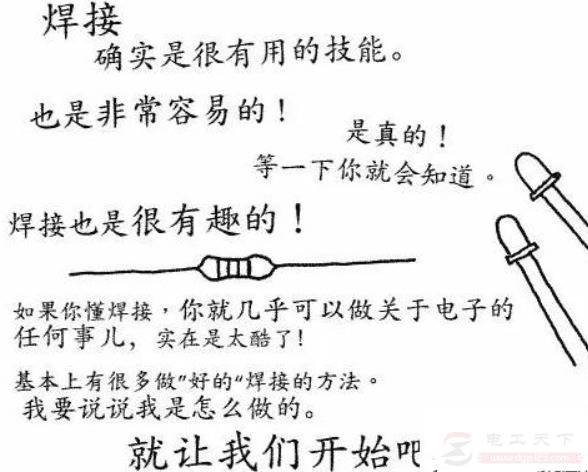 焊接
确实是很有用的技能。
也是非常容易的！
是真的！
等一下你就会知道。
焊接也是很有趣的！
如果你懂焊接，你就几乎可以做关于电子的
任何事儿，实在是太酷了！
基本上有很多做"好的"焊接的方法。
我要说说我是怎么做的。
就让我们开始吧
电工天下